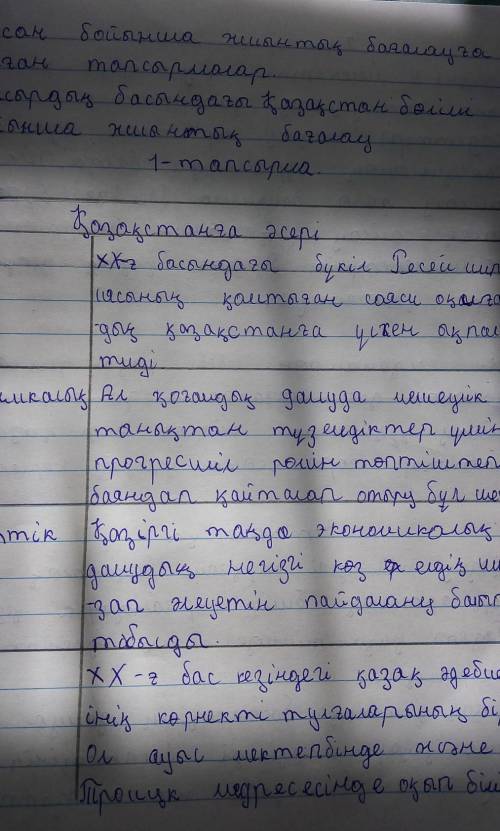 сан бойынша жиынтық бағалауға
ған тапсырмалар.
асырдың басындағы Қазақстан бөлімі
ынша жиынтық бағалау
1-тапсырма.
Қазақстанға әсері
ХХ-ғ басындағы бүкіл Ресей импер
иясының қамтыған саяси оқиғала
-дың қазақстанға үлкен ықпал
тиді
микалық Ал қоғамдық дамуда мешеулік
танытқан түземдіктер үшін
прогресшіл рөлін төптіштеп
баяндап қайталап отыру бұл
тік Қазіргі таңда экономикалық
дамудың негізгі көз елдің
-зап әлеуетін пайдалану бағы
табысды.
ХХ-ғ бас кезіндегі қазақ әдебие
інің көрнекті тұлғаларының бір
Ол ауыл мектебінде және
Троицк медресесінде оқып біл